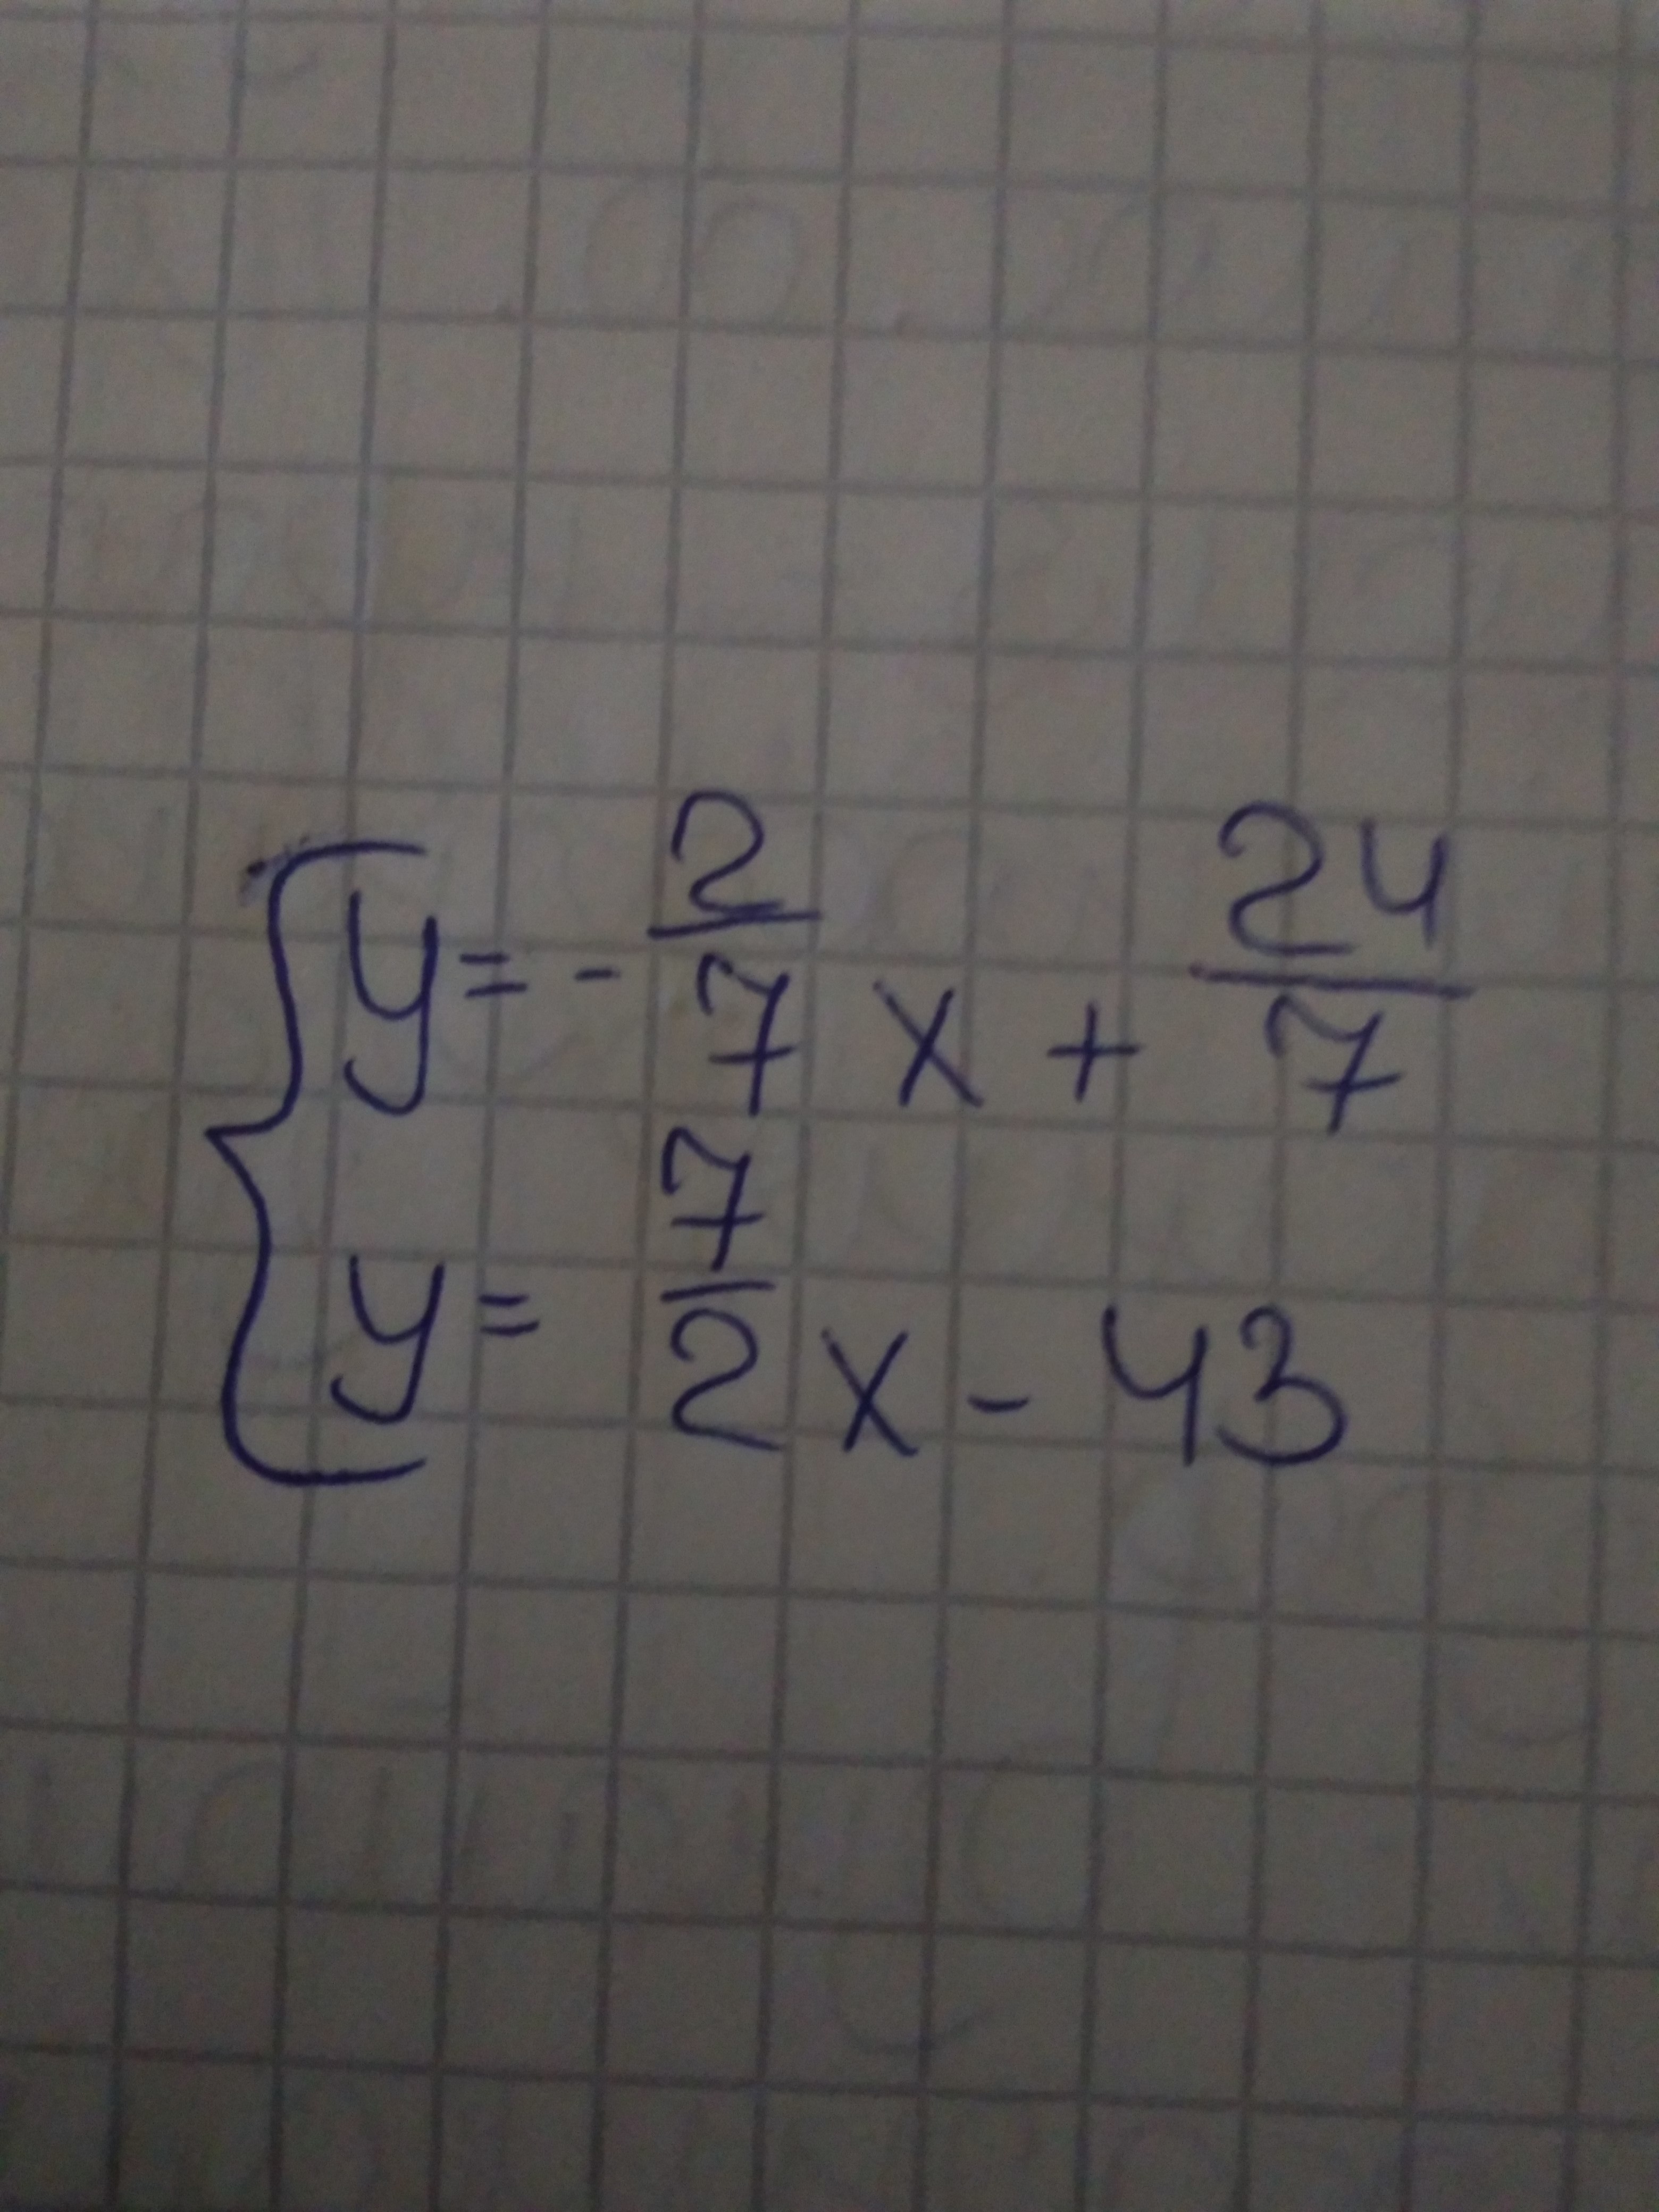 y = - 2/7 x + 24/7
y = 7/2 x - 43